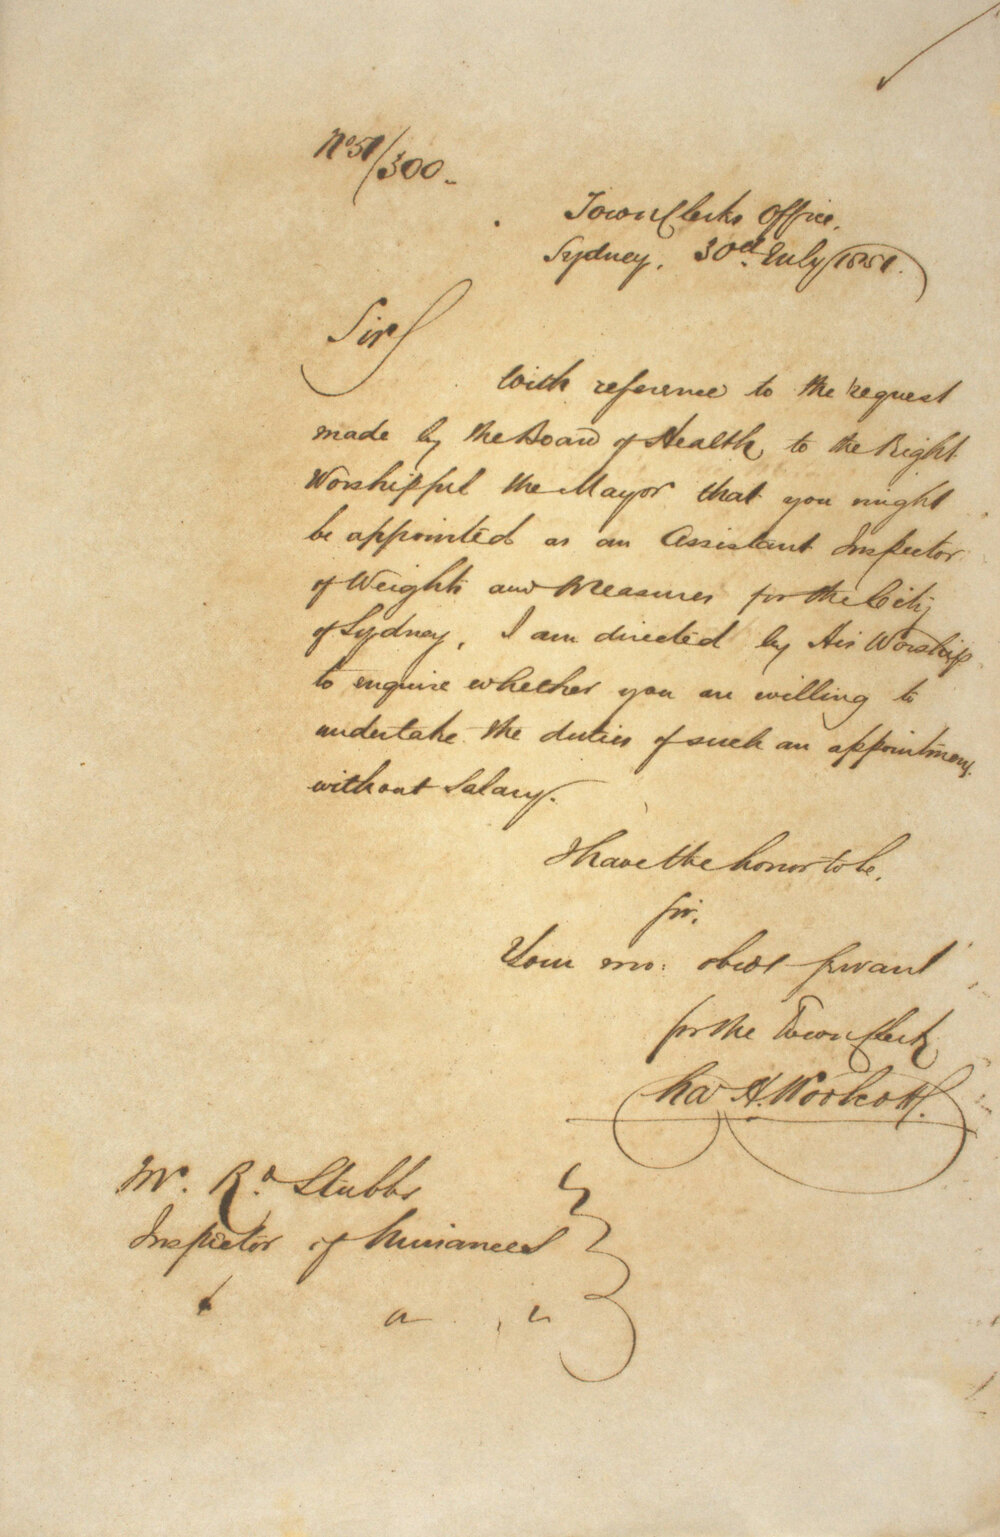 No 51/300
Town Clerks Office,
Sydney, 30th July 1851.
Sir
With reference to the request
made by the Board of Health, to the Right
Worshipful the Mayor that you might
be appointed as an Assistant Inspector
of Weights and Measures for the City
of Sydney, I am directed by His Worship
to enquire whether you are willing to
undertake the duties of such an appointment
without Salary.
I have the honor to be,
Sir,
Your mo: obedt Servant
for the Town Clerk
Chas H. Woolcott.
Mr. Rd Stubbs
Inspector of Nuisances